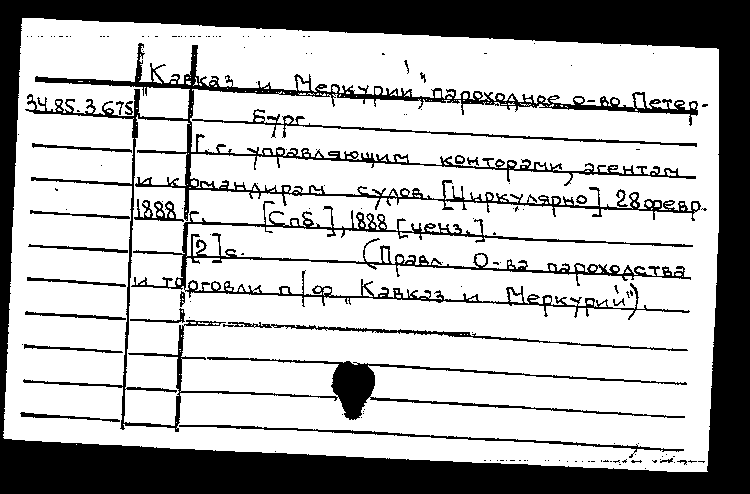 „Кавказ и Меркурий", пароходное о-во. Петер-
34.85.3.675
бург.
Г.г. управляющим конторами, агентам
и командирам судов. [Циркулярно]. 28 февр.
1888 г. [Спб.], 1888 [ценз.].
[2] с. (Правл. О-ва пароходства
и торговли п/ф „Кавказ и Меркурий").